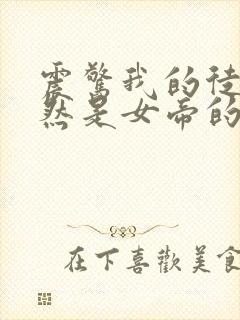 震驚我的徒
然是女帝的
在下喜歡美食